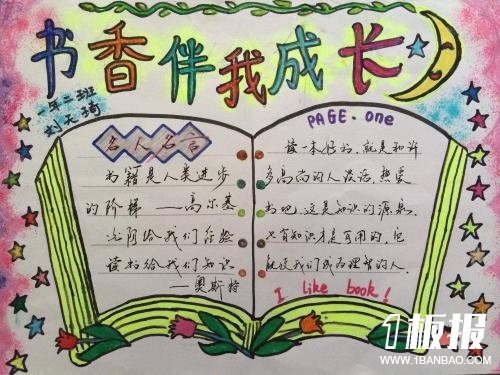 书香伴我成长
一年二班
刘天琦
名人名言
书籍是人类进步
的阶梯——高尔基
光阴给我们经验
读书给我们知识
——奥斯特
PAGE. one
读一本好书,就是和许
多高尚的人谈话,热爱
书吧,这是知识的源泉,
只有知识才是有用的,它
能使我们成为理智的人.
I like book!
1板报
WWW.1BANBAO.COM